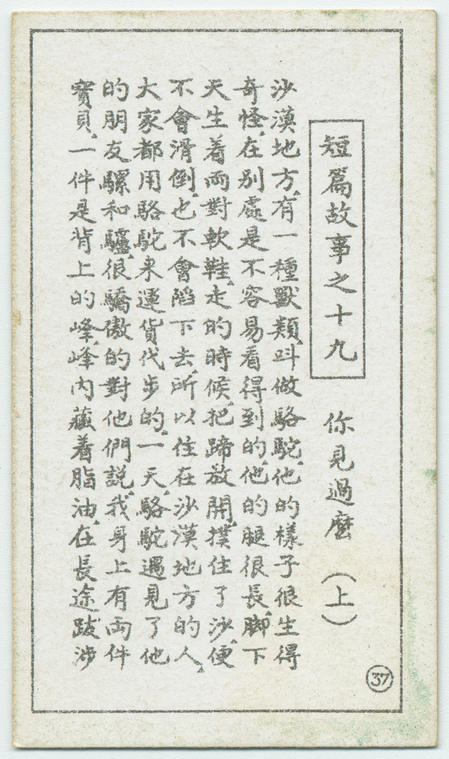 短篇故事之十九
你見過麼（上）
沙漠地方，有一種獸類，叫做駱駝，他的樣子很生得
奇怪，在别處是不容易看得到的，他的腿很長，脚下
天生着兩對軟鞋，走的時候，把蹄放開，撲住了沙，便
不會滑倒，也不會蹈下去，所以住在沙漠地方的人，
大家都用駱駝来運貨代步的，一天，駱駝遇見了他
的朋友騾和驢，很驕傲的對他們說，我身上有兩件
寶貝，一件是背上的峰，峰内藏着脂油，在長途跋涉
37